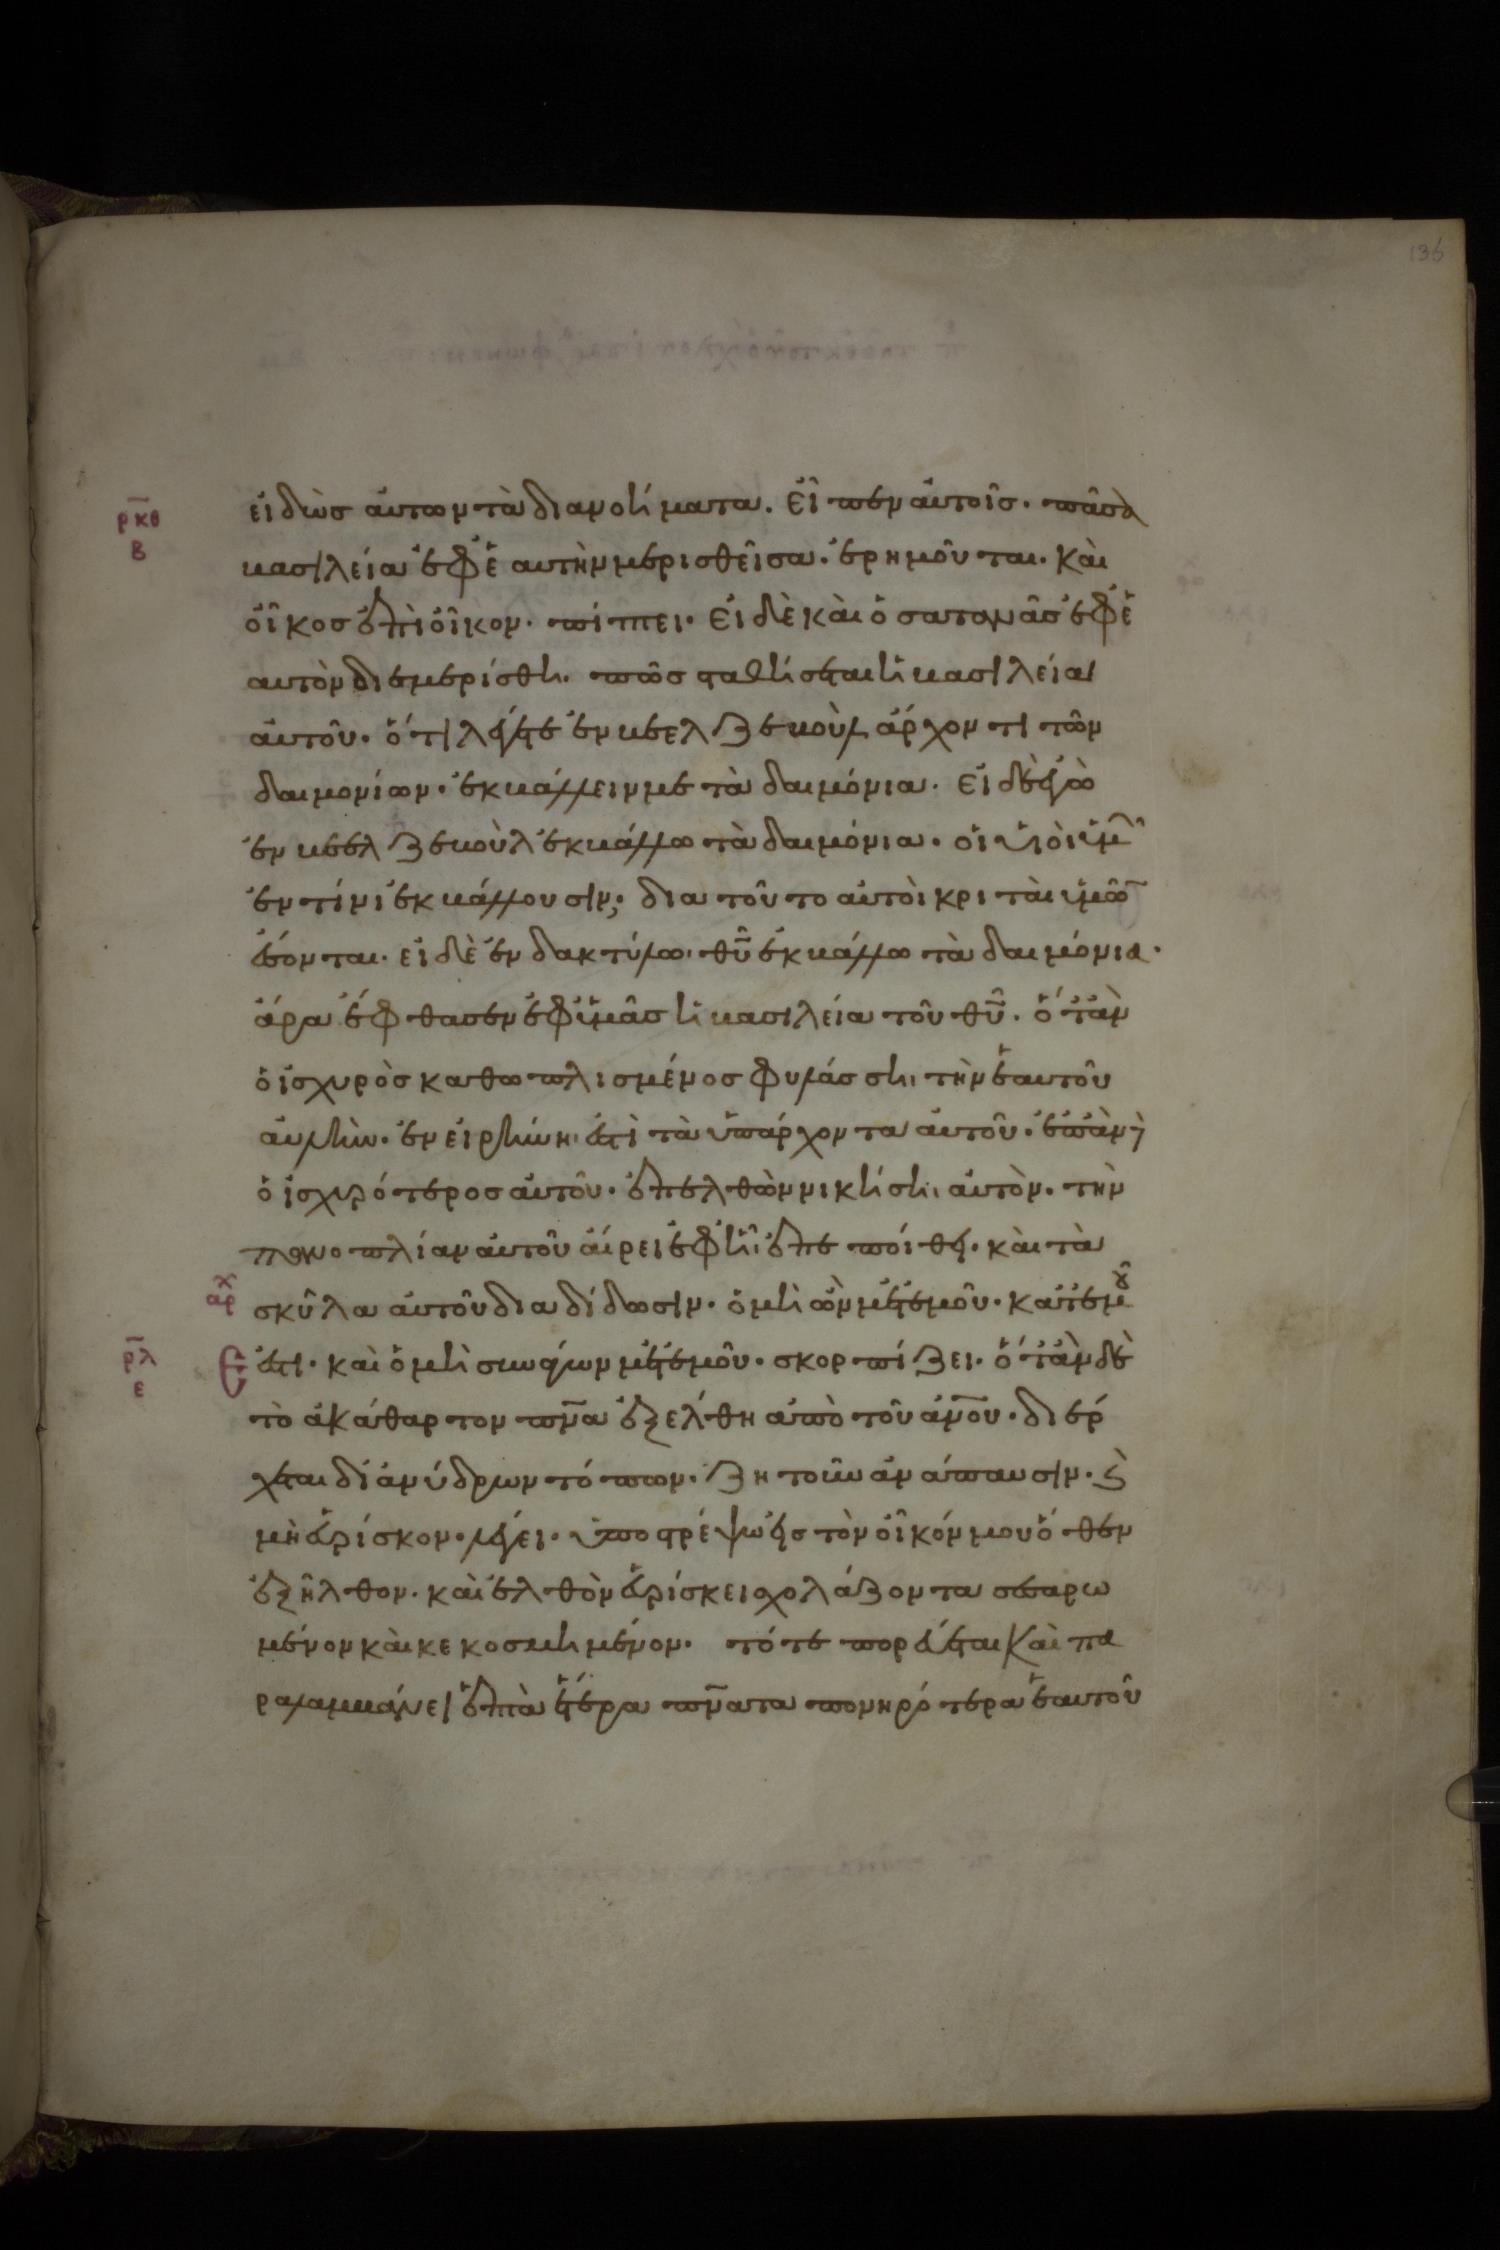 136
ρκθ
β
εἰδὼσ αὐτων τὰ διανοήματα. εἶπεν αὐτοῖσ. πᾶσα
βασιλεία ἐφ ἑαυτὴν μερισθεῖσα. ἐρημοῦται. καὶ
οἶκοσ ἐπὶ οἶκον. πίπτει. εἰ δὲ καὶ ὁ σατανᾶσ ἐφ ἑ
αυτὸν διεμερίσθη. πῶσ σταθήσεται ἡ βασιλεία
αὐτοῦ. ὅτι λέγετε ἐν βεελζεβοὺλ ἄρχοντι τῶν
δαιμονίων. ἐκβάλλειν με τὰ δαιμόνια. εἰ δὲ ἐγὼ
ἐν βεελζεβοὺλ ἐκβάλλω τὰ δαιμόνια. οἱ υἱοὶ ὑμῶ
ἐν τίνι ἐκβάλλουσιν; δια τοῦτο αὐτοὶ κριταὶ ὑμῶ
ἔσονται. εἰ δὲ ἐν δακτύλω θῦ ἐκβάλλω τὰ δαιμόνια.
ἄρα ἔφθασεν ἐφ ὑμᾶσ ἡ βασιλεία τοῦ θῦ. ὅταν
ὁ ἰσχυρὸσ καθωπλισμένοσ φυλάσση τὴν ἑαυτοῦ
αὐλὴν. ἐν εἰρήνη ἐστὶ τὰ ὑπάρχοντα αὐτοῦ. ἐπὰν
ὁ ἰσχυρότεροσ αὐτοῦ. ἐπελθὼν νικήση αὐτὸν. τὴν
πανοπλίαν αὐτοῦ αἴρει ἐφ ἧ ἐπεποίθει. καὶ τὰ
αρχ
σκῦλα αὐτοῦ διαδίδωσιν. ὁ μὴ ὢν μετ ἐμοῦ. κατ ἐμοῦ
ρλ
ε
ἐστι. καὶ ὁ μὴ συνάγων μετ ἐμοῦ. σκορπίζει. ὅταν δὲ
τὸ ἀκάθαρτον πνα ἐξέλθη ἀπὸ τοῦ ἀνου. διέρ
χεται δι ἀνύδρων τόπων. ζητοῦν ἀνάπαυσιν. καὶ
μὴ εὑρίσκον. λέγει. ὑποστρέψω εἰσ τὸν οἶκόν μου ὅθεν
ἐξῆλθον. καὶ ἐλθὸν εὑρίσκει σχολάζοντα σεσαρω
μένον καὶ κεκοσμημένον. τότε πορεύεται καὶ πα
ραλαμβάνει ἑπτὰ ἕτερα πνατα πονηρότερα ἑαυτοῦ